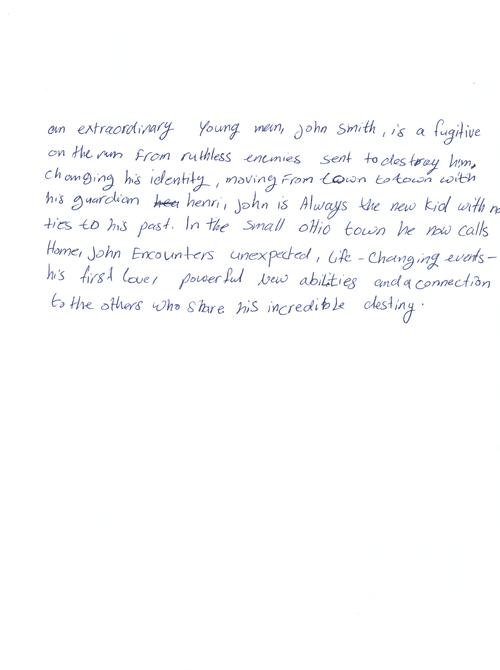 an extraordinary Young man, john smith, is a fugitive
on the run from ruthless enemies sent to destroy him.
changing his identity, moving from town to town with
his guardian henri, john is Always the new kid with no
ties to his past. In the small ohio town he now calls
Home, john Encounters unexpected, Life-Changing events-
his first love, powerful new abilities and a connection
to the others who share his incredible destiny.